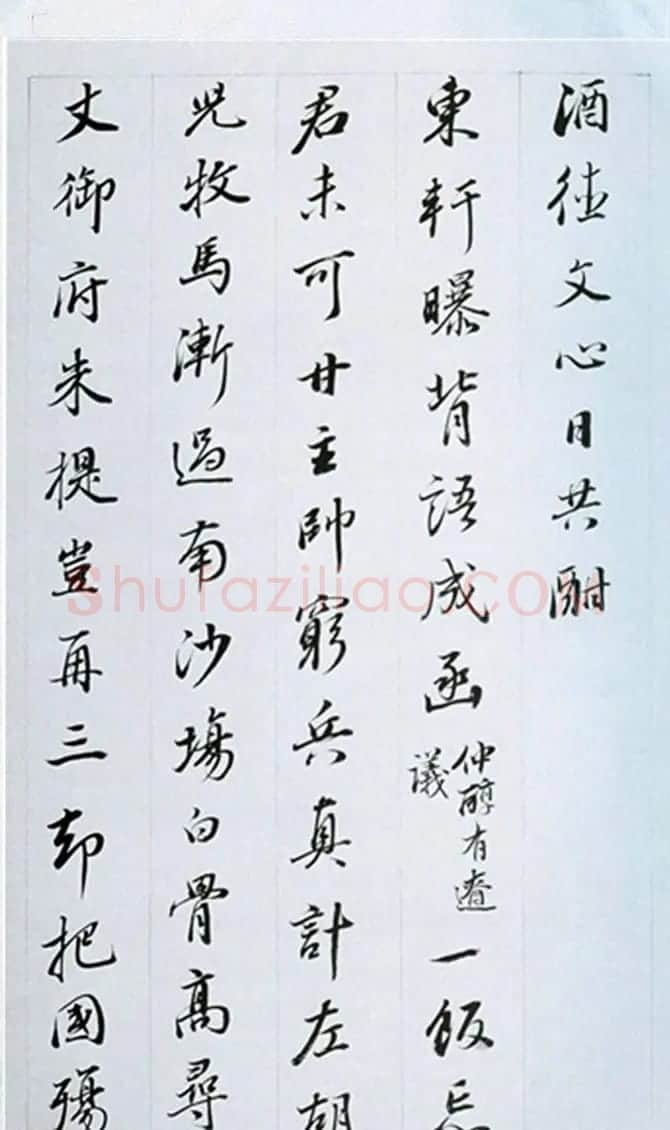 酒德文心日共酣
東軒曝背語成函
仲醇有遼
議
一飯忘
君未可甘主帥窮兵真計左胡
兒牧馬漸過南沙場白骨高尋
丈御府朱提豈再三却把國殤
Shufaziliao.COM